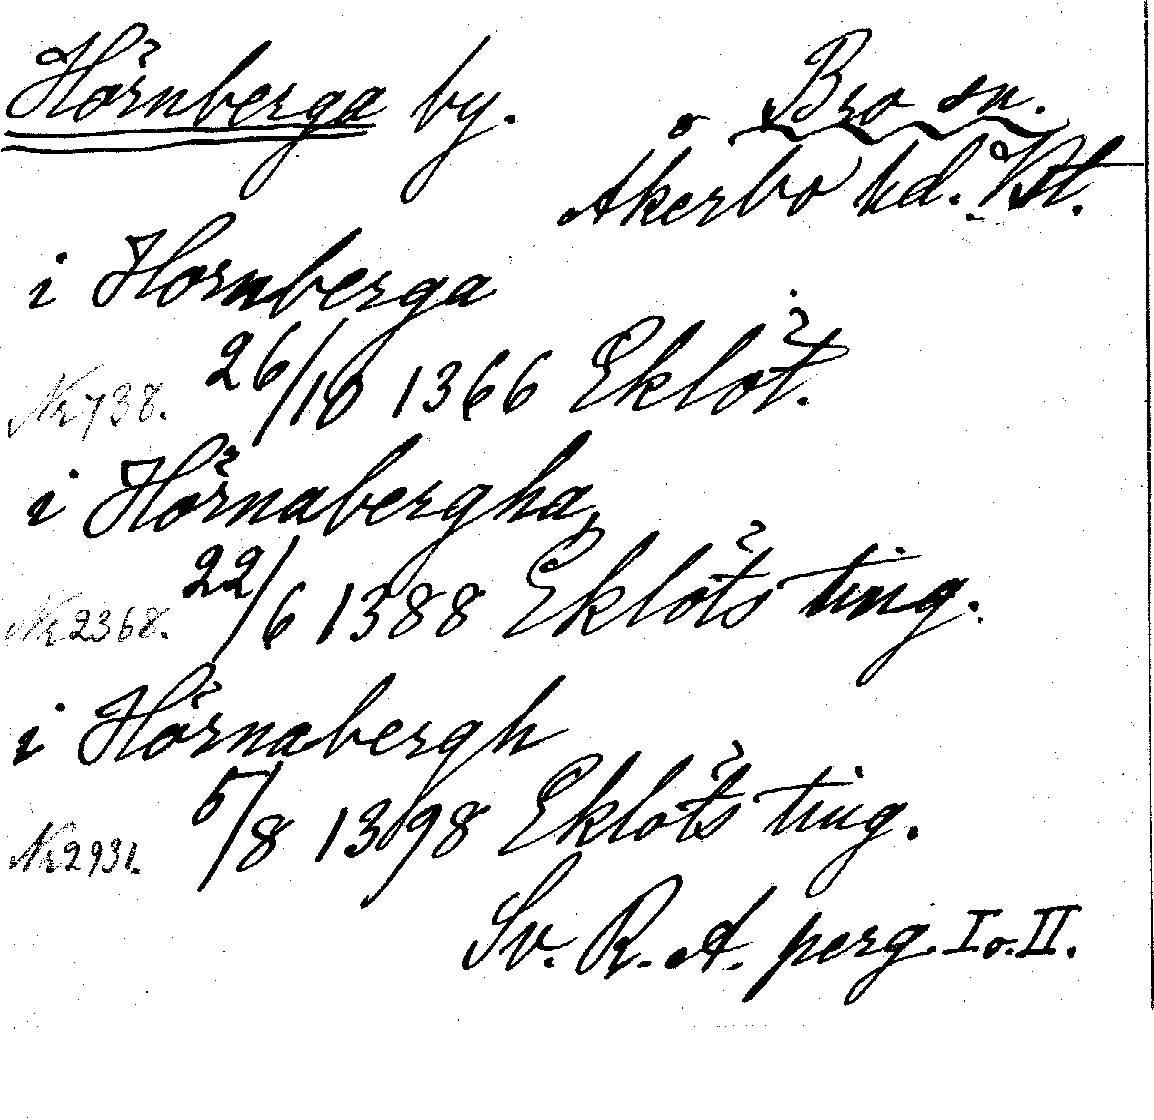 Hörnberga by. Bro sn.
Åkerbo hd. Vstl.
i Hornberga
Nr 738. 26/10 1366 Eklöt.
i Hörnabergha,
Nr 2368. 22/6 1388 Eklöts ting.
i Hörnabergh
Nr 2931. 5/8 1398 Eklöts ting.
Sv. R. A. perg. I o. II.